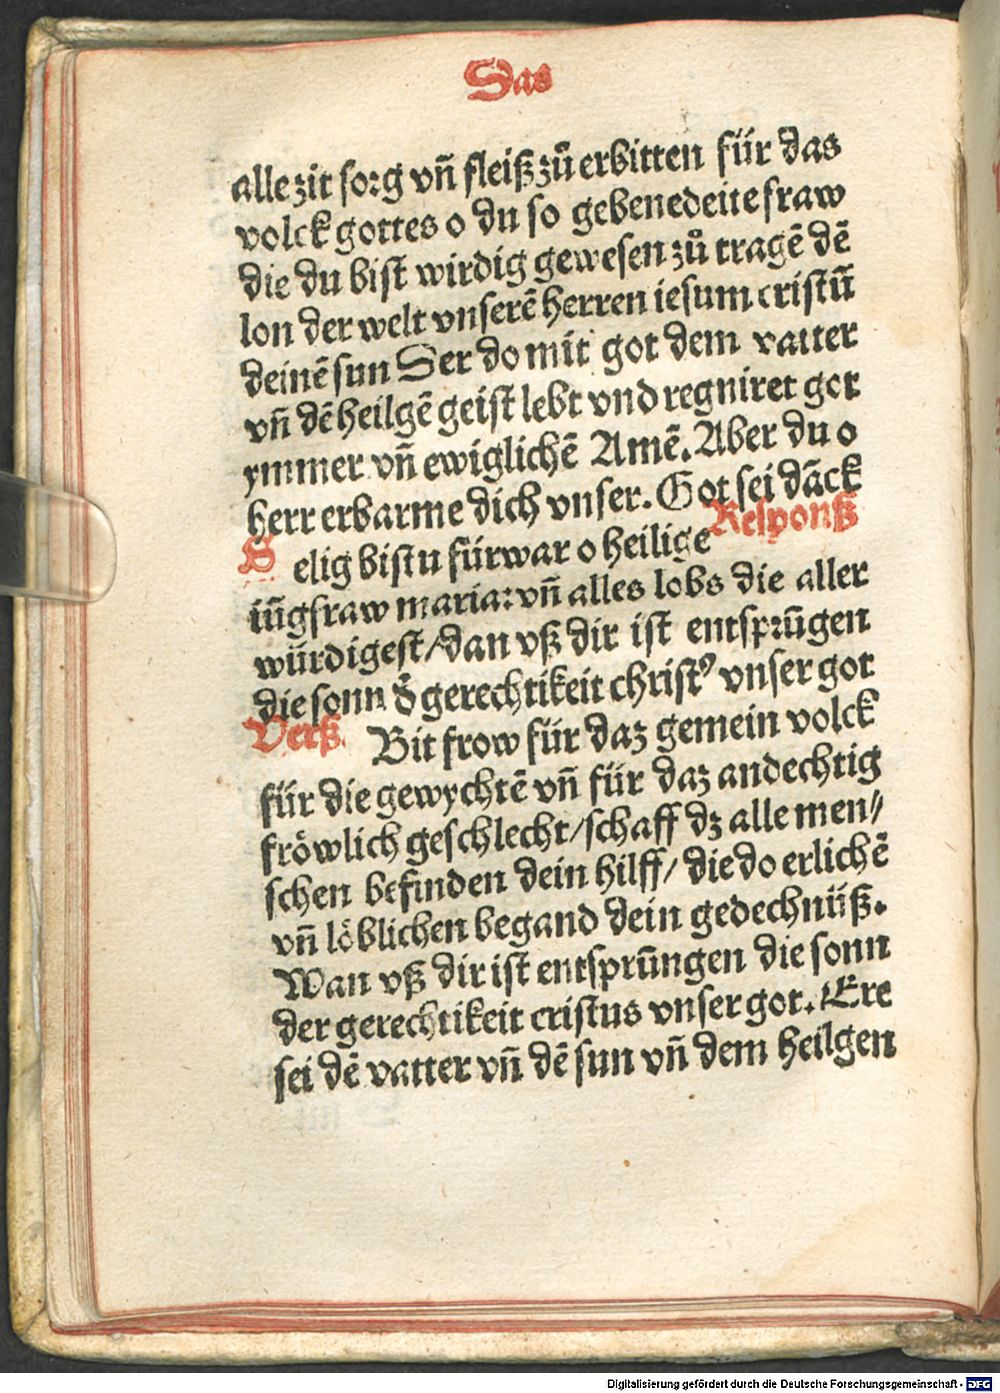 Das
alle zit sorg vñ fleiß zů erbitten für das
volck gottes o du so gebenedeite fraw
die du bist wirdig gewesen zů tragē dē
lon der welt vnserē herren iesum cristū
deinē sun Der do mit got dem vatter
vñ dē heilgē geist lebt vnd regniret got
ymmer vñ ewiglichē Amē. Aber du o
herr erbarme dich vnser. Got sei dāck
Selig bistu fürwar o heilige Responß
iūgfraw maria: vñ alles lobs die aller
würdigest/dan vß dir ist entsprūgen
die sonn d̄ gerechtikeit christꝰ vnser got
Verß. Bit frow für daz gemein volck
für die gewychtē vñ für daz andechtig
fröwlich geschlecht/schaff dz alle men⸗
schen befinden dein hilff/ die do erlichē
vñ löblichen begand dein gedechnüß.
Wan vß dir ist entsprūngen die sonn
der gerechtikeit cristus vnser got. Ere
sei dē vatter vñ dē sun vñ dem heilgen
Digitalisierung gefördert durch die Deutsche Forschungsgemeinschaft - DFG